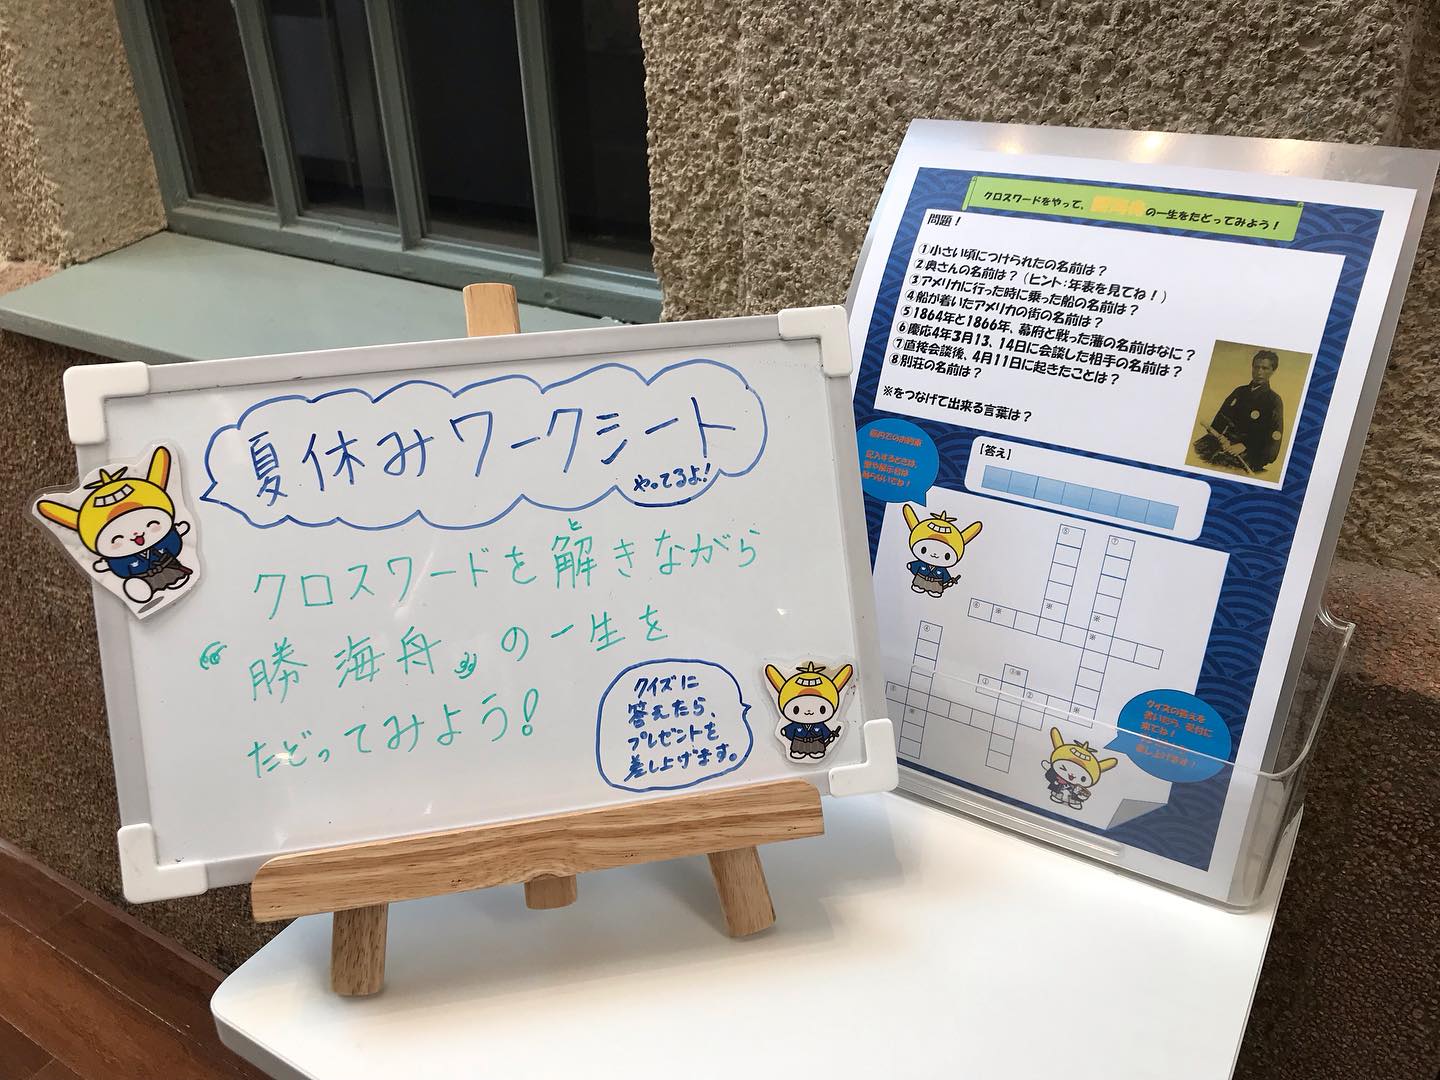 夏休みワークシート
やってるよ!
クロスワードを解きながら
と
“勝海舟”の一生を
たどってみよう!
クイズに
答えたら、
プレゼントを
差し上げます。
クロスワードをやって、勝海舟の一生をたどってみよう!
問題!
①小さい頃につけられたの名前は?
②奥さんの名前は?(ヒント:年表を見てね!)
③アメリカに行った時に乗った船の名前は?
④船が着いたアメリカの街の名前は?
⑤1864年と1866年、幕府と戦った藩の名前はなに?
⑥慶応4年3月13、14日に会談した相手の名前は?
⑦直接会談後、4月11日に起きたことは?
⑧別荘の名前は?
※をつなげて出来る言葉は?
館内でのお約束
記入するときは、
壁や展示台は
触らないでね!
【答え】
⑤
⑦
⑥
※
※
※
④
③※
①
②
※
クイズの答えを
書いたら、受付に
来てね!
差し上げます!